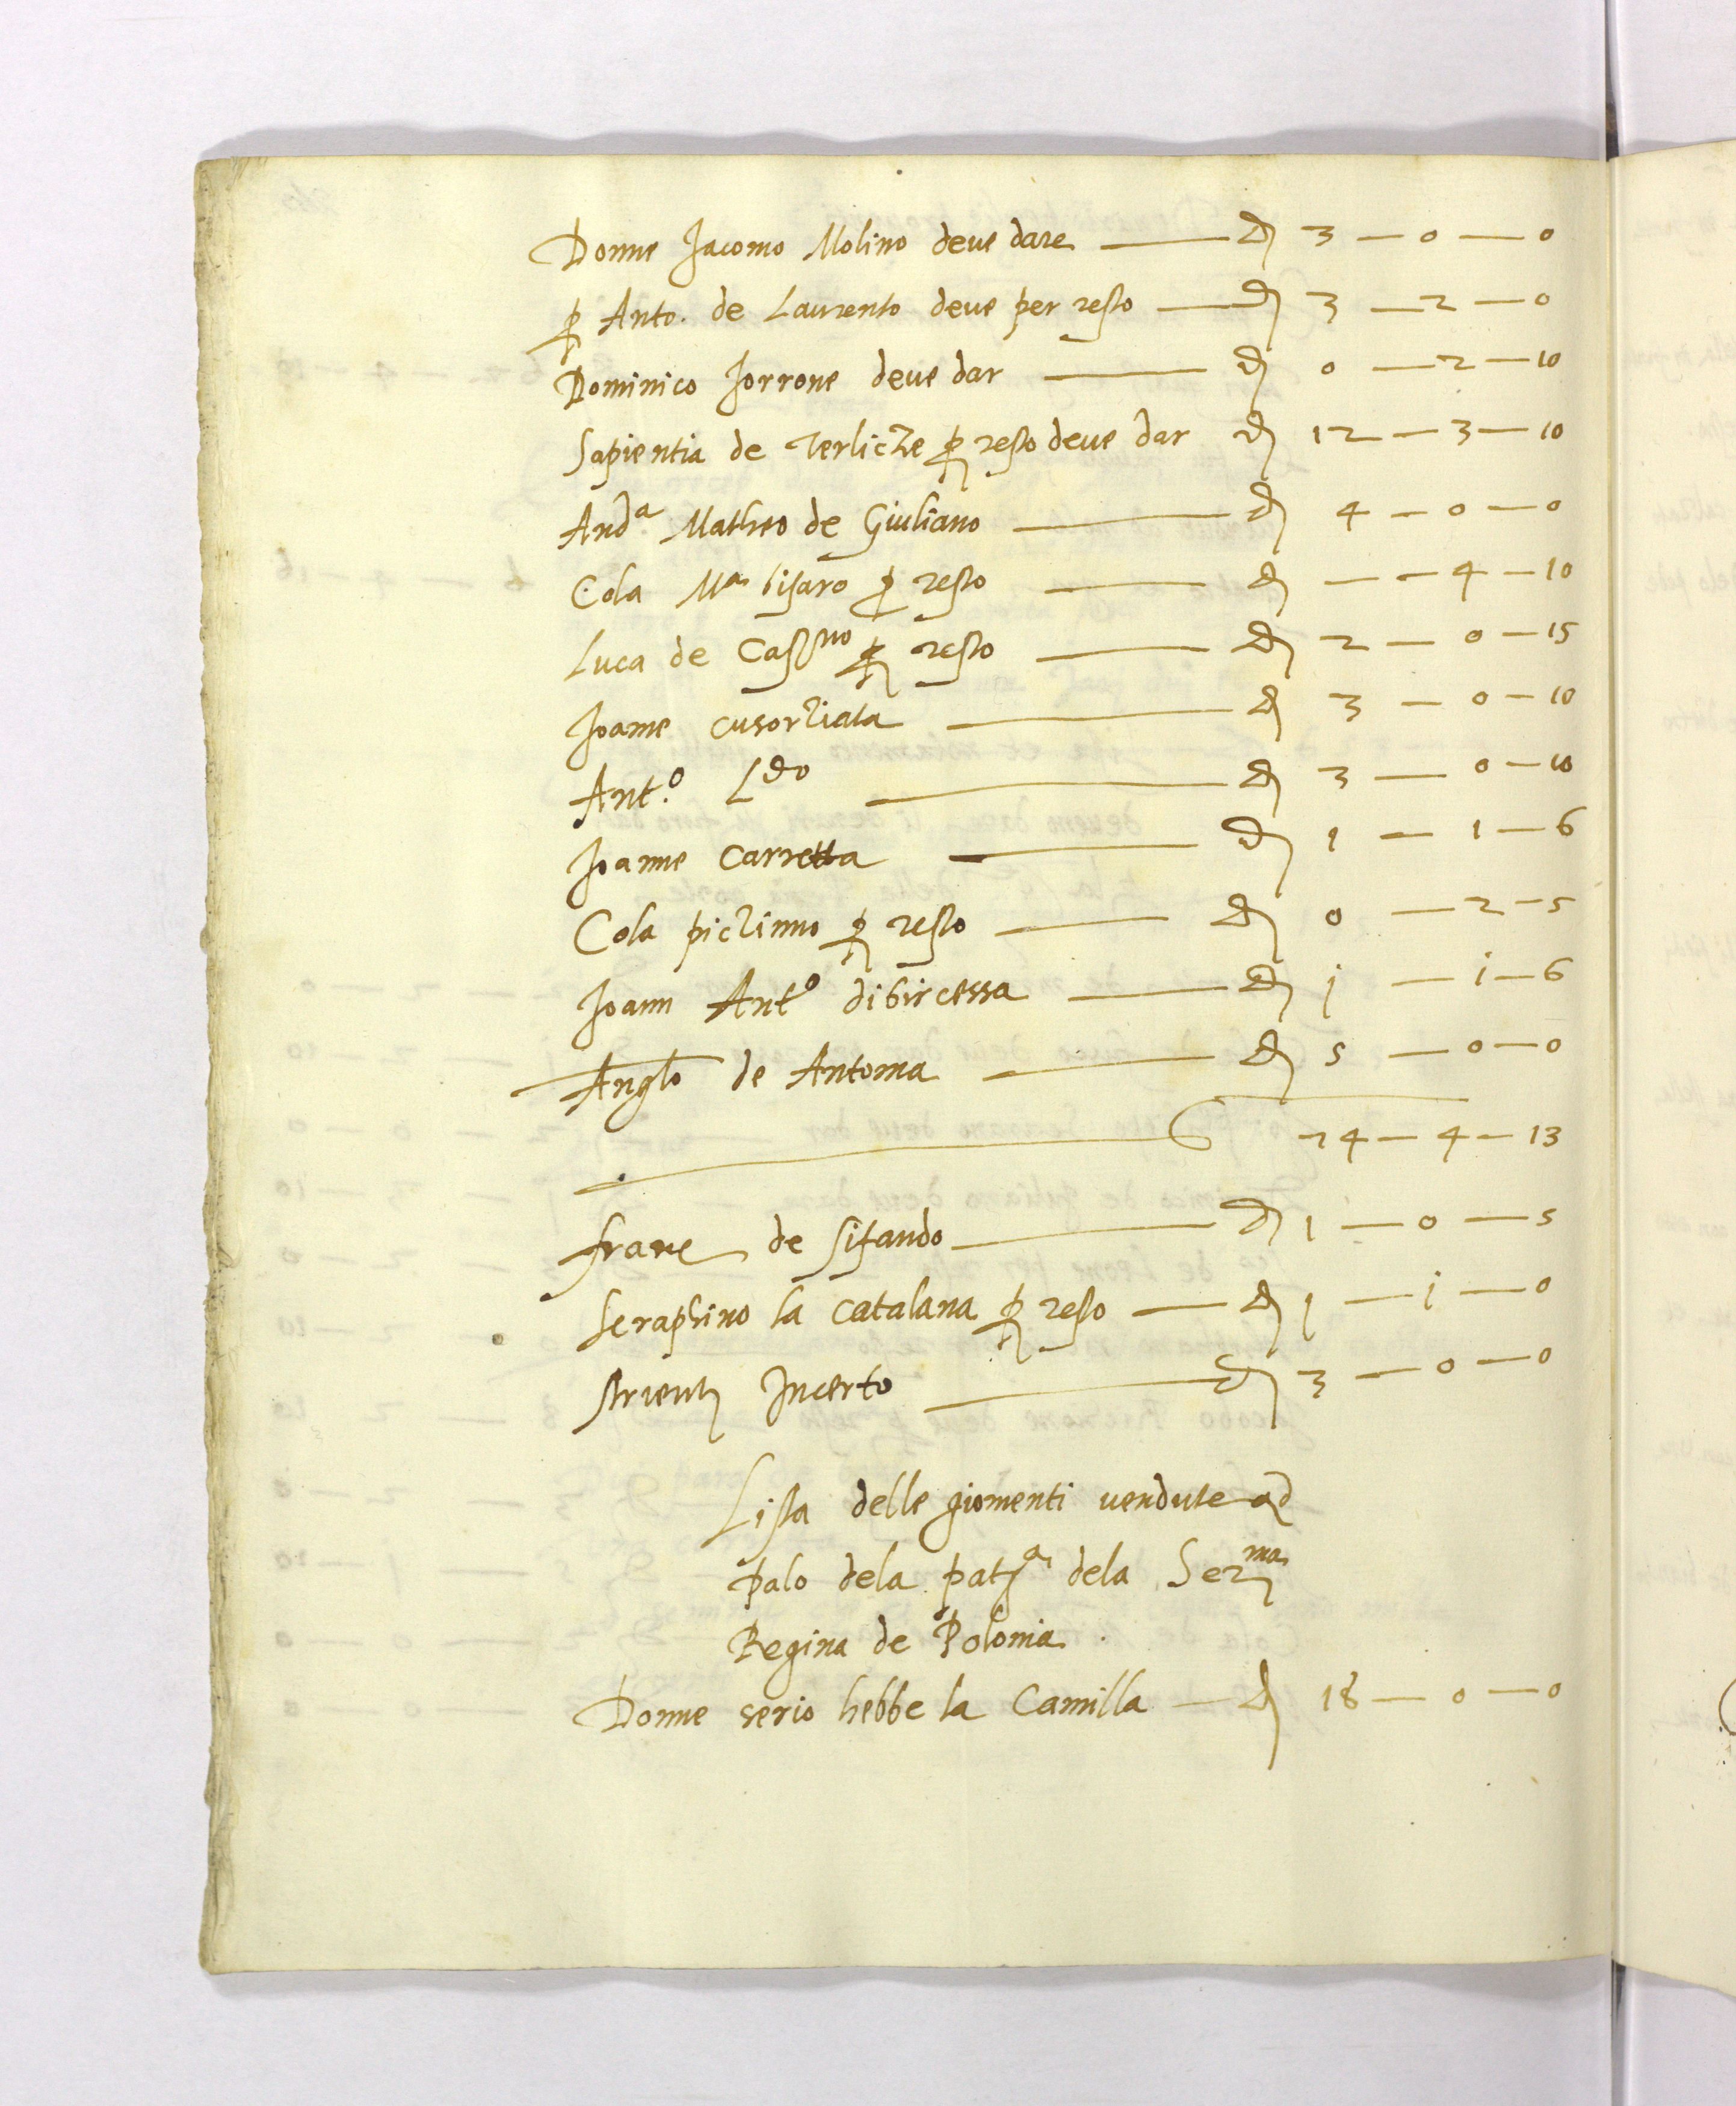 Donne Jacomo Molino deve dare — D 3 — 0 — 0
p Anto. de Laurento deve per resto — D 3 — 2 — 0
Dominico Jorrone deve dar — D 0 — 2 — 10
Sapientia de Terlicze p resto deve dar D 12 — 3 — 10
And.a Matheo de Giuliano — D 4 — 0 — 0
Cola Ma bisaro p resto — D — — 4 — 10
Luca de Casno p resto — D 2 — 0 — 15
Joanne cusorziata — D 3 — 0 — 10
Ant.o Ldo — D 3 — 0 — 10
Joanne Carretta — D 1 — 1 — 6
Cola piczinno p resto — D 0 — 2 — 5
Joann Anto dibircessa — D j — i — 6
Anglo de Antonia — D 5 — 0 — 0
— 24 — 4 — 13
de Sifando — D 1 — 0 — 5
Seraphino la catalana p resto — D 1 — i — 0
Incerto — D 3 — 0 — 0
Lista delle giomenti vendute ad
Palo dela dela Serma
Regina de Polonia.
Donne serio hebbe la Camilla — D 18 — 0 — 0